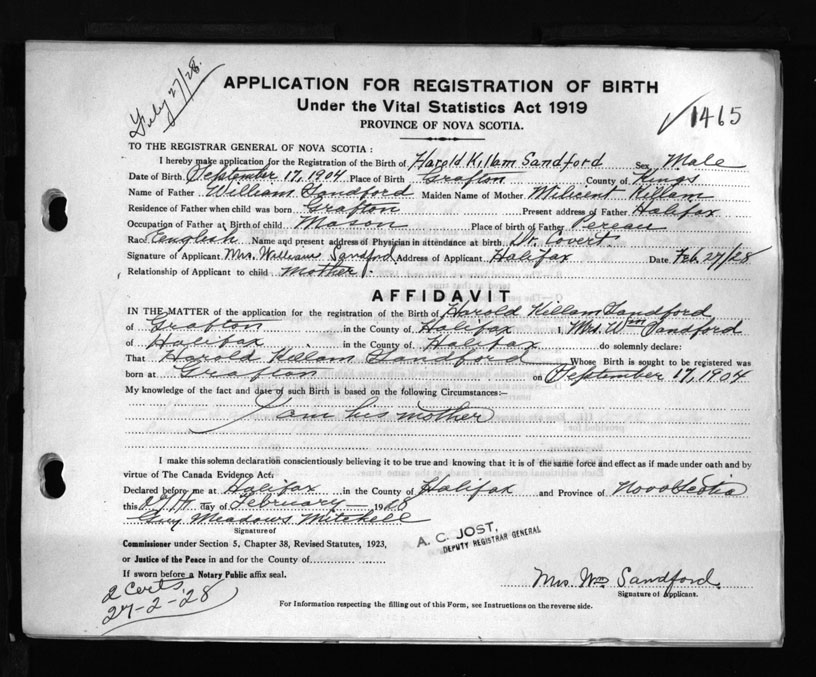 Feby 27/28.
APPLICATION FOR REGISTRATION OF BIRTH
Under the Vital Statistics Act 1919
PROVINCE OF NOVA SCOTIA.
✓1465
TO THE REGISTRAR GENERAL OF NOVA SCOTIA :
I hereby make application for the Registration of the Birth of Harold Killam Sandford Sex Male
Date of Birth September 17, 1904 Place of Birth Grafton County of Kings
Name of Father William Sandford Maiden Name of Mother Milicent Killam
Residence of Father when child was born Grafton Present address of Father Halifax
Occupation of Father at Birth of child Mason Place of birth of Father Pereau
Race English Name and present address of Physician in attendance at birth Dr. Covert.
Signature of Applicant Mrs. William Sandford Address of Applicant Halifax Date Feb. 27/28
Relationship of Applicant to child Mother.
AFFIDAVIT
IN THE MATTER of the application for the registration of the Birth of Harold Killam Sandford
of Grafton in the County of Halifax I, Mrs. Wm Sandford
of Halifax in the County of Halifax do solemnly declare:
That Harold Killam Sandford Whose Birth is sought to be registered was
born at Grafton on September 17, 1904
My knowledge of the fact and date of such Birth is based on the following Circumstances:—
I am his mother
I make this solemn declaration conscientiously believing it to be true and knowing that it is of the same force and effect as if made under oath and by
virtue of The Canada Evidence Act:
Declared before me at Halifax in the County of Halifax and Province of Nova Scotia
this 27th day of February 1928
Guy Meadows Mitchell
Signature of
Commissioner under Section 5, Chapter 38, Revised Statutes, 1923,
or Justice of the Peace in and for the County of
If sworn before a Notary Public affix seal.
A. C. JOST,
DEPUTY REGISTRAR GENERAL
Mrs. Wm Sandford.
Signature of Applicant.
2 Certs
27-2-28
For Information respecting the filling out of this Form, see Instructions on the reverse side.